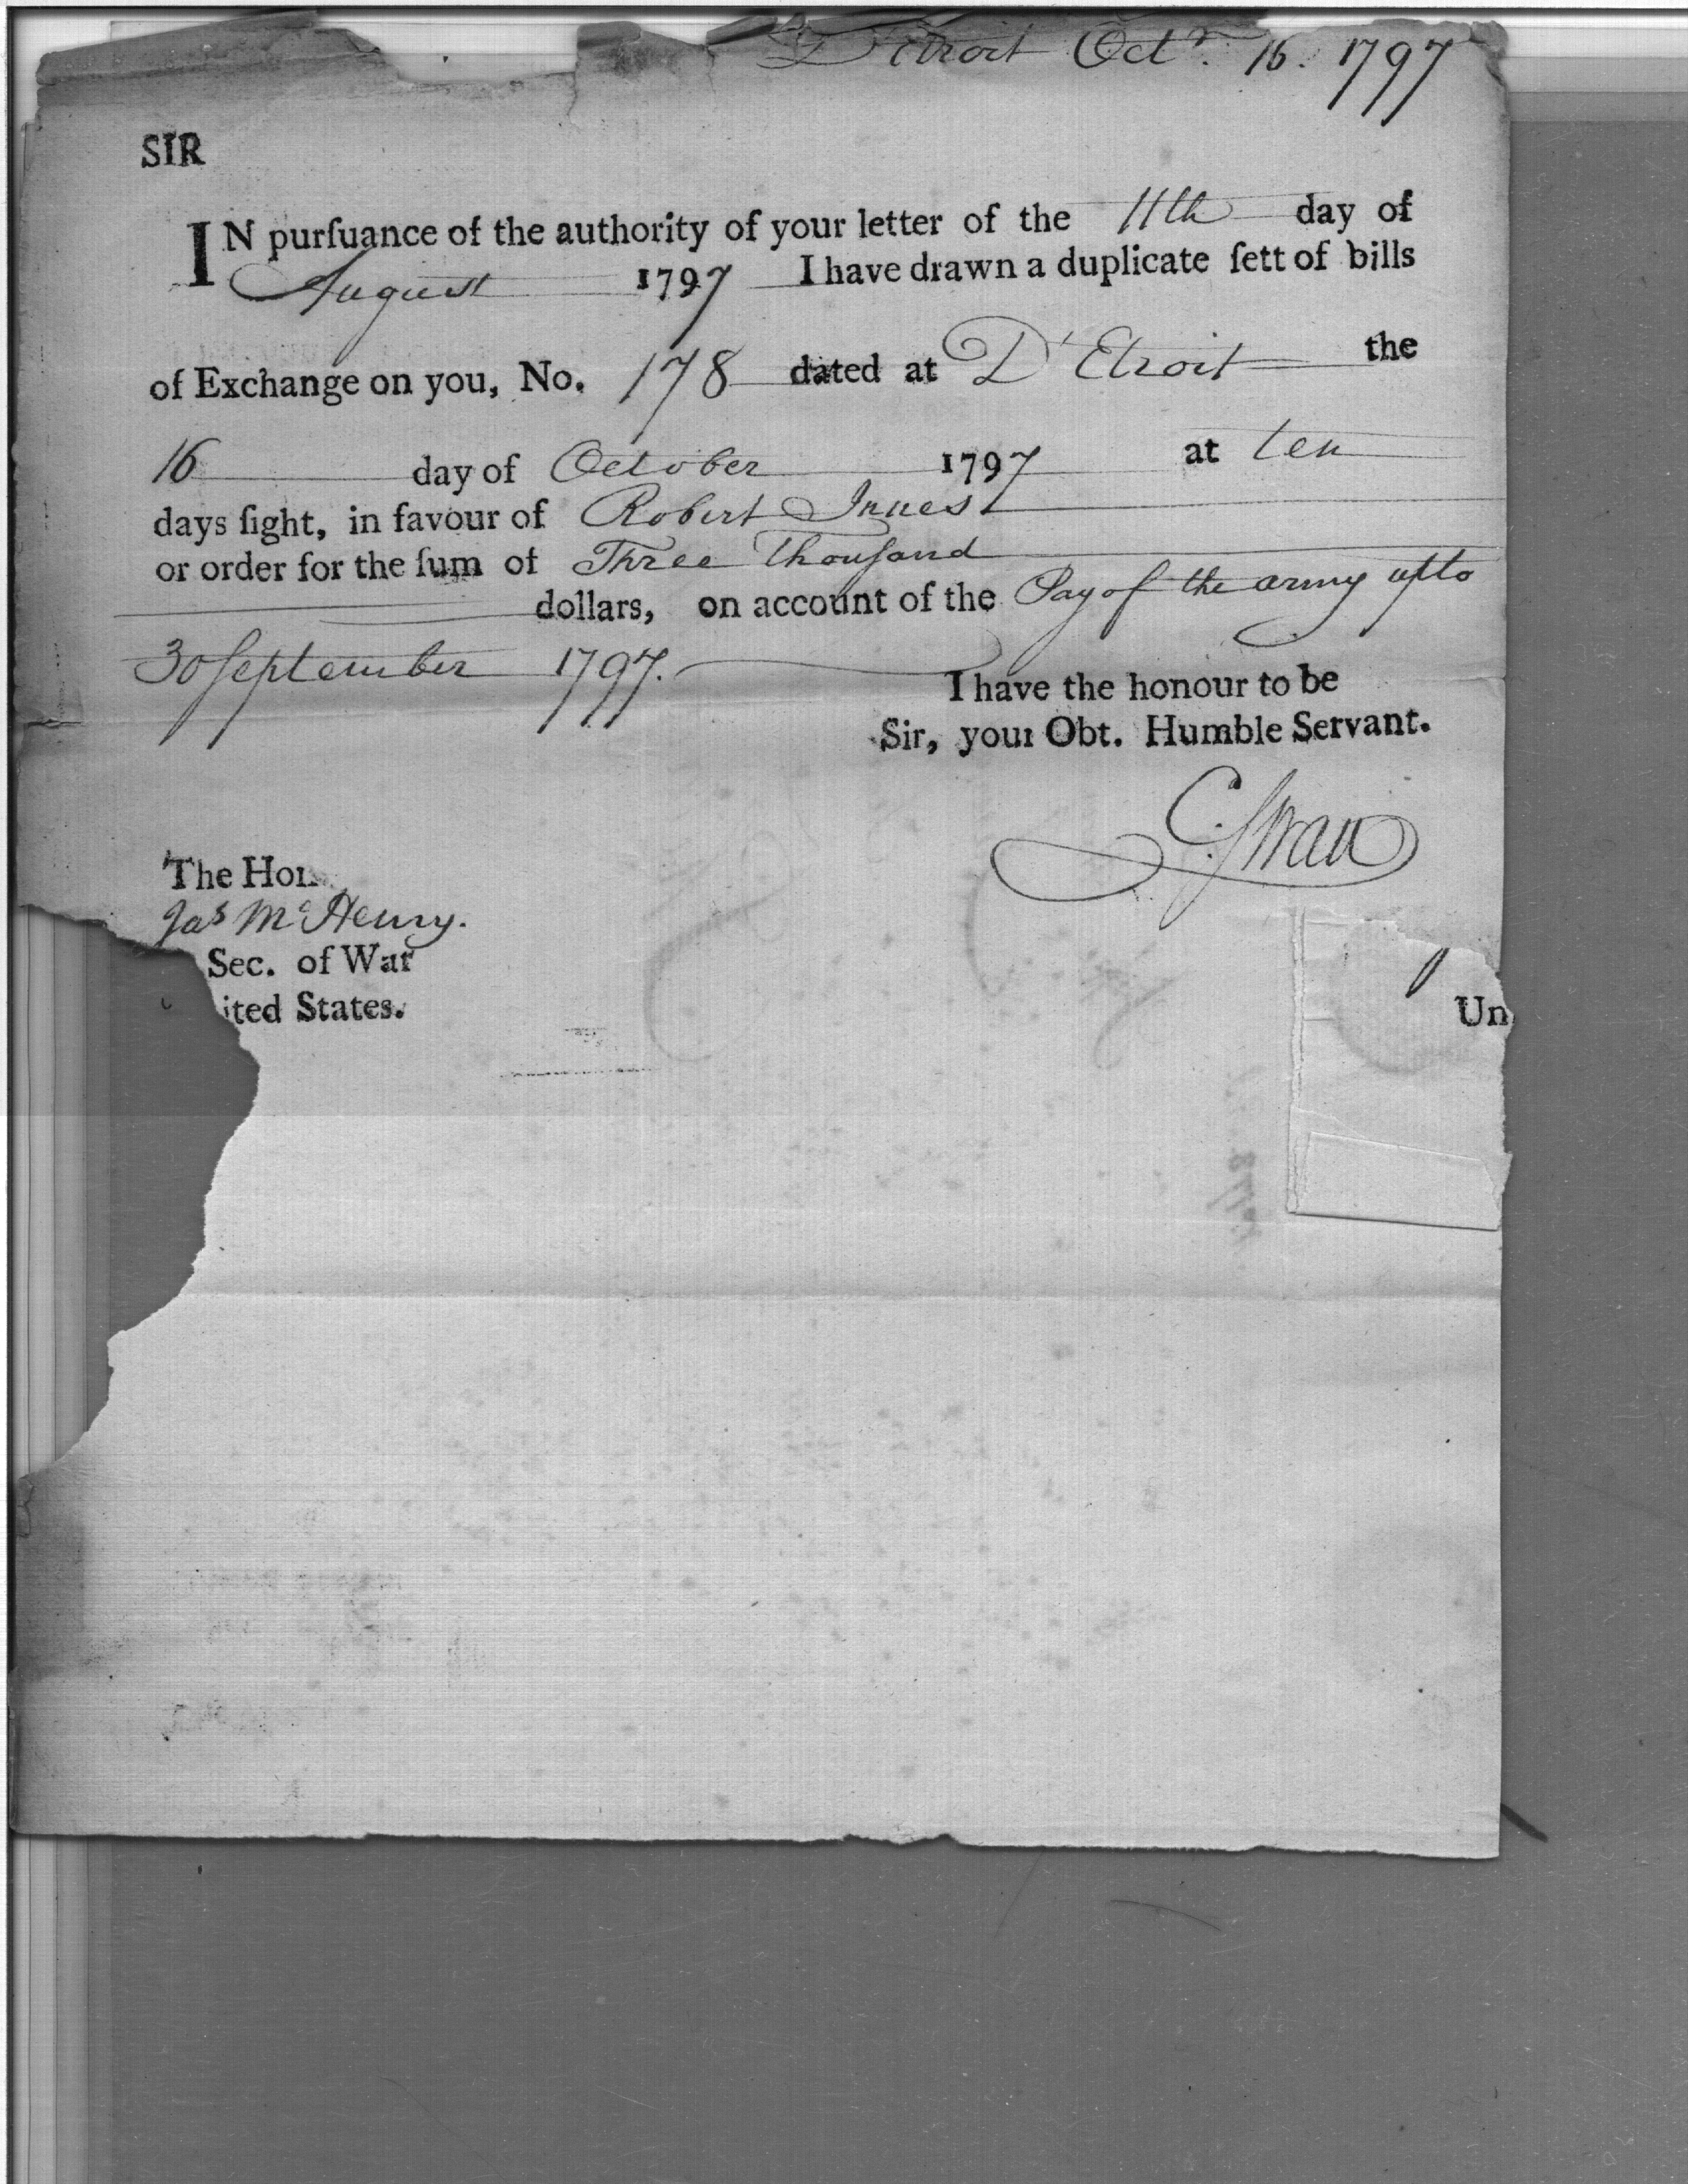 Detroit Octr. 16. 1797
SIR
IN purſuance of the authority of your letter of the 11th day of
August 1797 I have drawn a duplicate ſett of bills
of Exchange on you, No. 178 dated at D'Etroit the
16 day of October 1797 at ten
days ſight, in favour of Robert Innes
or order for the ſum of Three Thouſand
dollars, on account of the Pay of the army upto
30 September 1797.
I have the honour to be
Sir, your Obt. Humble Servant.
C. Swan
The Hon
Jas McHenry.
Sec. of War
ited States.
Un